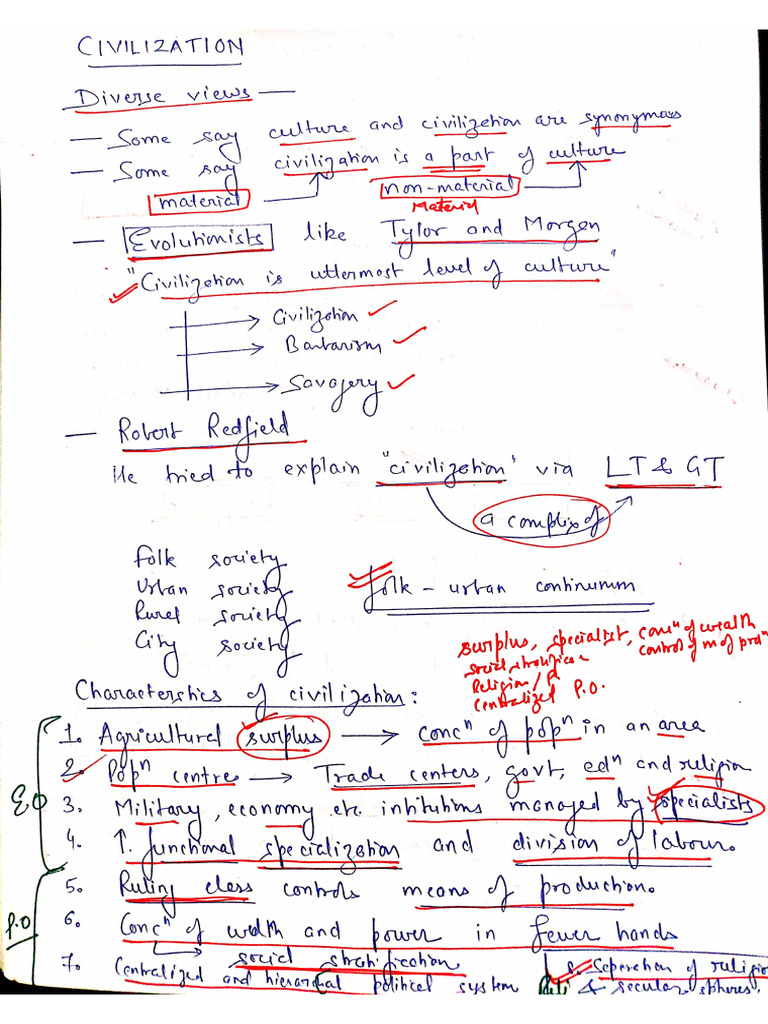 CIVILIZATION
Diverse views —
— Some say culture and civilization are synonymous
— Some say civilization is a part of culture
material non-material
Material
— Evolutionists like Tylor and Morgan
"Civilization is uttermost level of culture"
Civilization
Barbarism
Savagery
— Robert Redfield
He tried to explain "civilization" via LT & GT
a complex of
folk society
Urban society folk - urban continumm
Rural society
City society
surplus, specialist, concⁿ of wealth
social stratification control of m of prodⁿ
Religion/P
Centralized P.O.
Characterstics of civilization:
1. Agricultural surplus → concⁿ of popⁿ in an area
2. Popⁿ centre → Trade centers, govt, edⁿ and religion
E.O 3. Military, economy etc. intitutions managed by specialists
4. ↑. functional specialization and division of labour.
5. Ruling class controls means of production.
P.O 6. Concⁿ of wealth and power in fewer hands
social stratification
7. Centralized and hierarchal political system
8. Seperation of religion
& secular spheres.